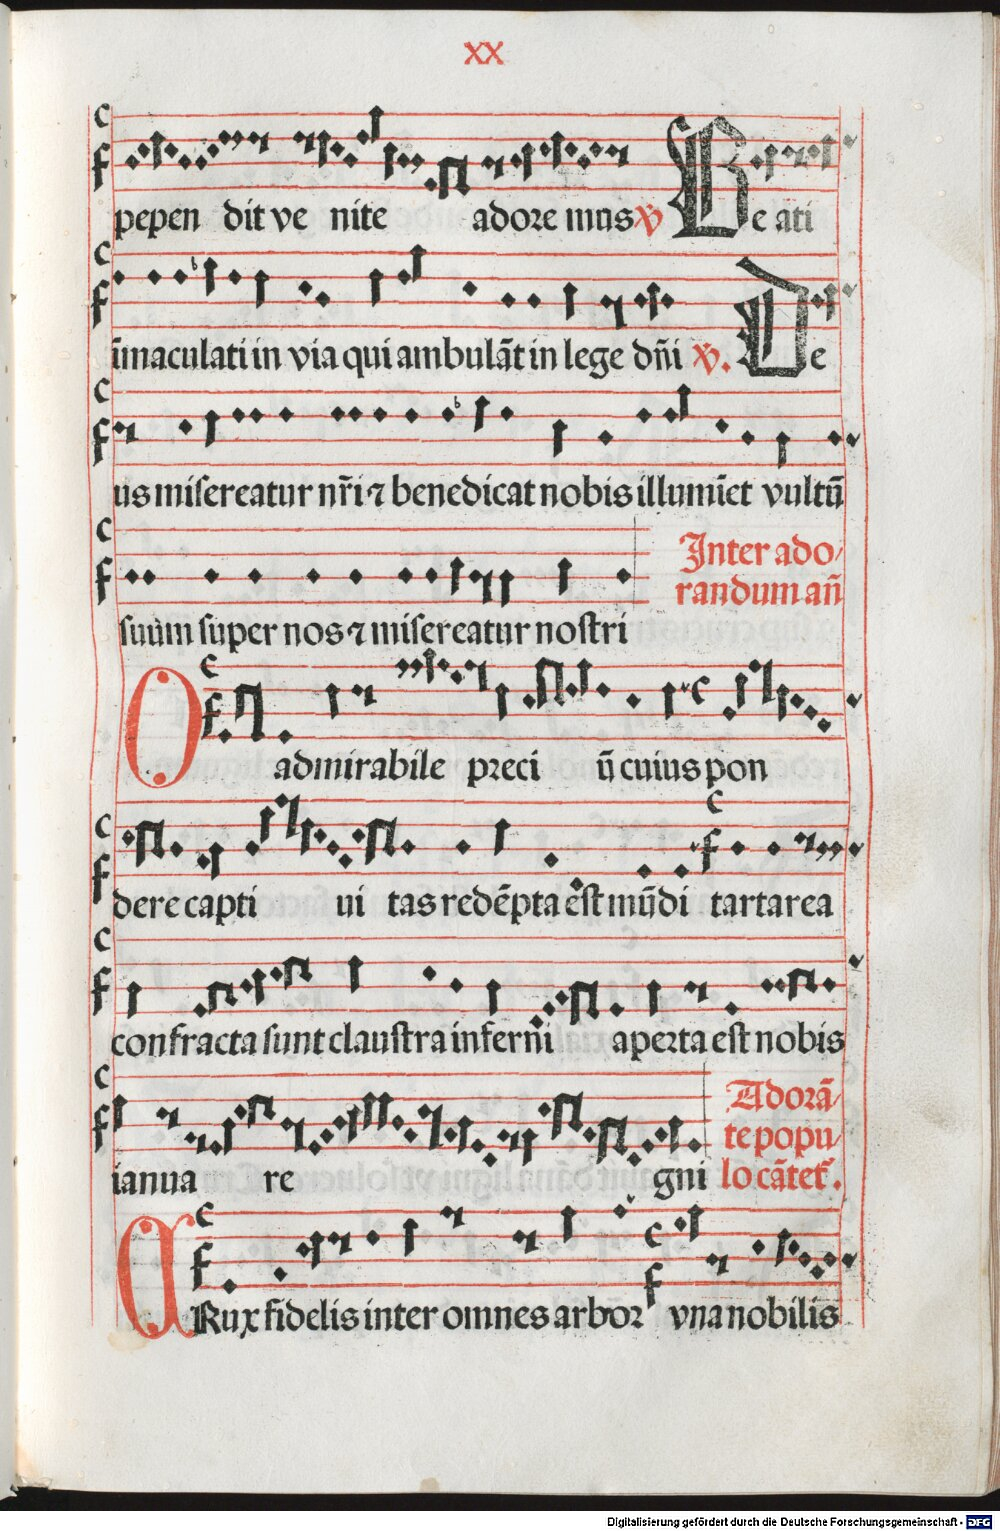 XX
pepen dit ve nite adore mus ꝟ Be ati
īmaculati in via qui ambulāt in lege dn̄i ꝟ. De
us misereatur nr̄i ⁊ benedicat nobis illumīet vultū
suūm super nos ⁊ misereatur nostri
Inter ado/
randum an̄
O admirabile preci ū cuius pon
dere capti ui tas redēpta est mūdi tartarea
confracta sunt claustra inferni aperta est nobis
ianua re gni
Adorā/
te popu/
lo cātet᷑.
CRux fidelis inter omnes arbor vna nobilis
Digitalisierung gefördert durch die Deutsche Forschungsgemeinschaft - DFG